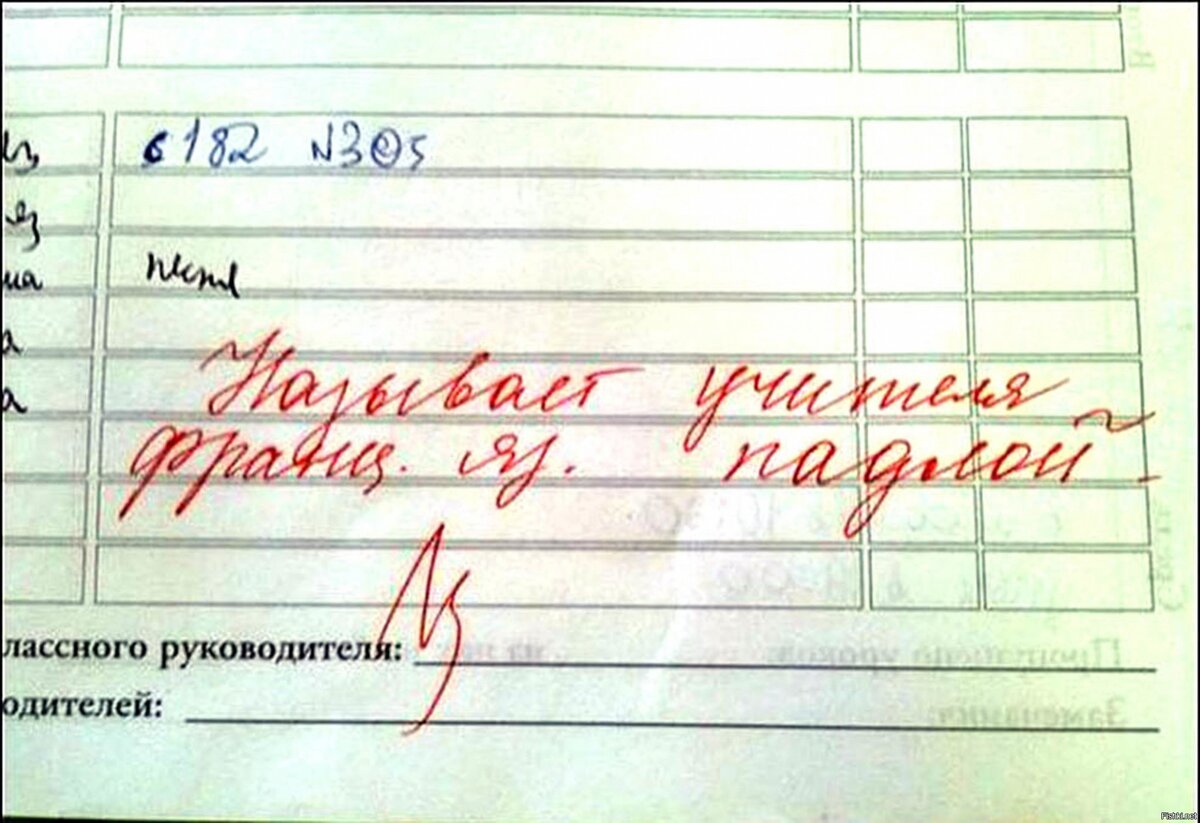 с 182 N305
Называет учителя
франц. яз. падлой
лассного руководителя:
одителей:
Fishki.net